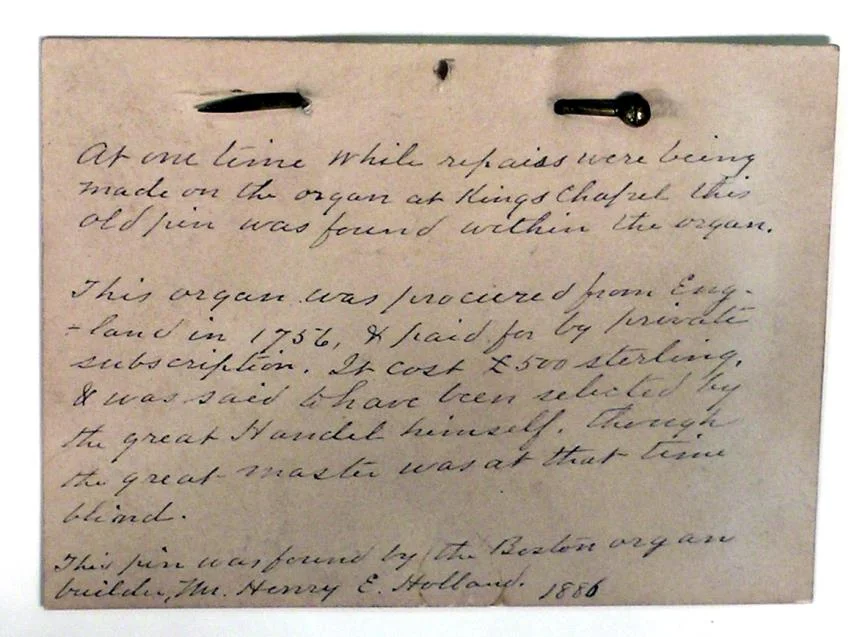 At one time while repairs were being
made on the organ at Kings Chapel this
old pin was found within the organ.
This organ was procured from Eng-
-land in 1756, & paid for by private
subscription. It cost £500 sterling,
& was said to have been selected by
the great Handel himself. though
the great master was at that time
blind.
This pin was found by the Boston organ
builder, Mr. Henry E. Holland. 1886